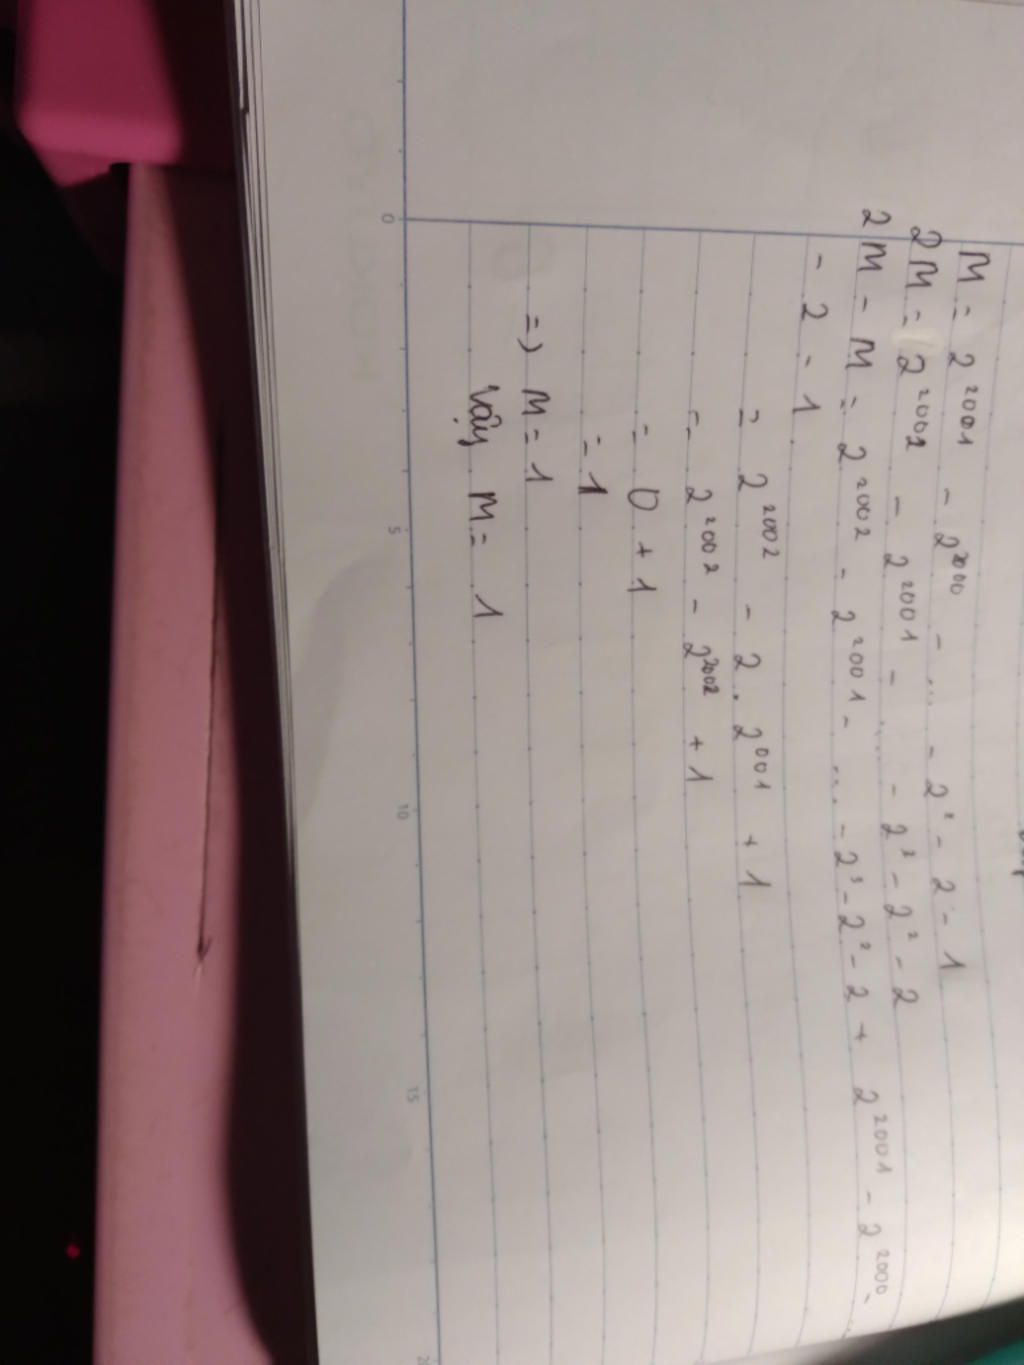 M = 2²⁰⁰¹ - 2²⁰⁰⁰ - ... - 2² - 2 - 1
2M = 2²⁰⁰² - 2²⁰⁰¹ - ... - 2³ - 2² - 2
2M - M = 2²⁰⁰² - 2²⁰⁰¹ - ... - 2³ - 2² - 2 + 2²⁰⁰¹ - 2²⁰⁰⁰ - ...
- 2 - 1
= 2²⁰⁰² - 2 . 2⁰⁰¹ + 1
= 2²⁰⁰² - 2²⁰⁰² + 1
= 0 + 1
= 1
=) M = 1
Vậy M = 1
0 5 10 15